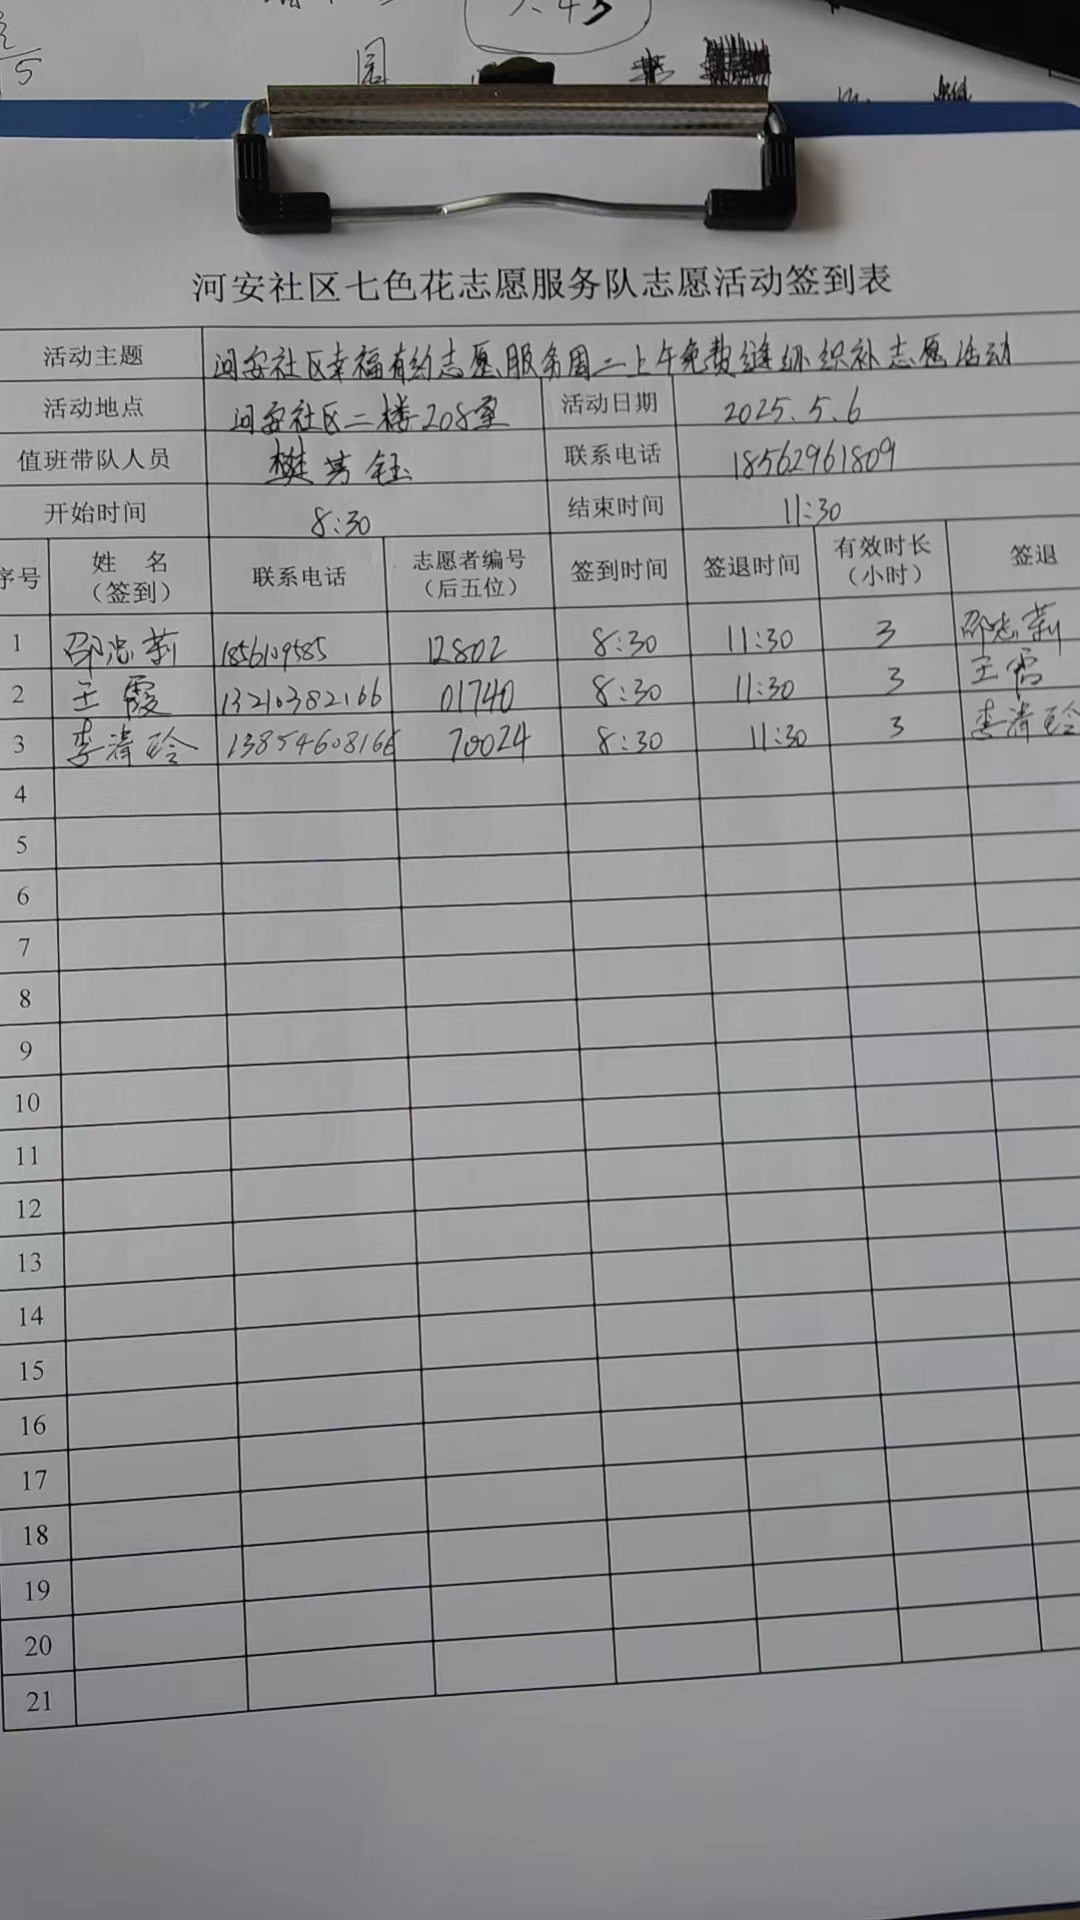 园
河安社区七色花志愿服务队志愿活动签到表
活动主题 河安社区幸福有约志愿服务周二上午免费缝纫织补志愿活动
活动地点 河安社区二楼208室 活动日期 2025.5.6
值班带队人员 樊芳钰 联系电话 18562961809
开始时间 8:30 结束时间 11:30
序号 姓 名 联系电话 志愿者编号 签到时间 签退时间 有效时长 签退
（签到） （后五位） （小时）
1 邵忠莉 12802 8:30 11:30 3 邵忠莉
2 王霞 13210382166 01740 8:30 11:30 3 王霞
3 李清玲 13854608166 70024 8:30 11:30 3 李清玲
4
5
6
7
8
9
10
11
12
13
14
15
16
17
18
19
20
21